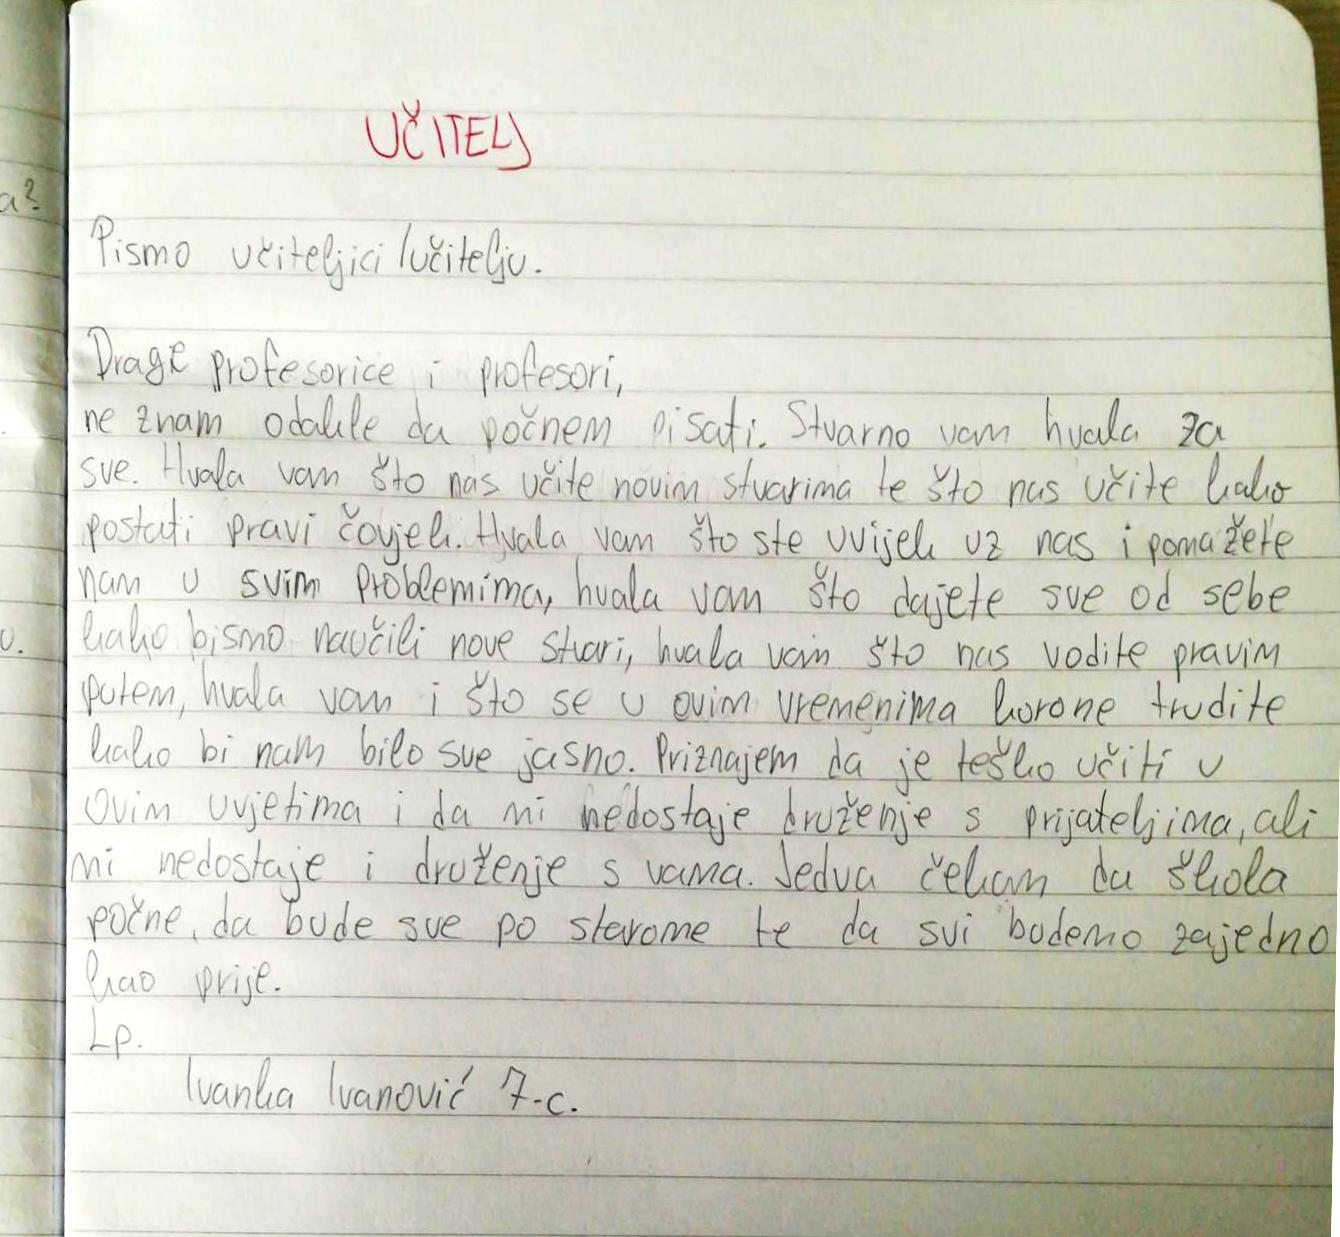 UČITELJ
a?
Pismo učiteljici/učitelju.
Drage profesorice i profesori,
ne znam odakle da počnem pisati. Stvarno vam hvala za
sve. Hvala vam što nas učite novim stvarima te što nas učite kako
postati pravi čovjek. Hvala vam što ste uvijek uz nas i pomažete
nam u svim problemima, hvala vam što dajete sve od sebe
kako bismo naučili nove stvari, hvala vam što nas vodite pravim
putem, hvala vam i što se u ovim vremenima korone trudite
kako bi nam bilo sve jasno. Priznajem da je teško učiti u
ovim uvjetima i da mi nedostaje druženje s prijateljima, ali
mi nedostaje i druženje s vama. Jedva čekam da škola
počne, da bude sve po starome te da svi budemo zajedno
kao prije.
Lp.
Ivanka Ivanović 7.c.